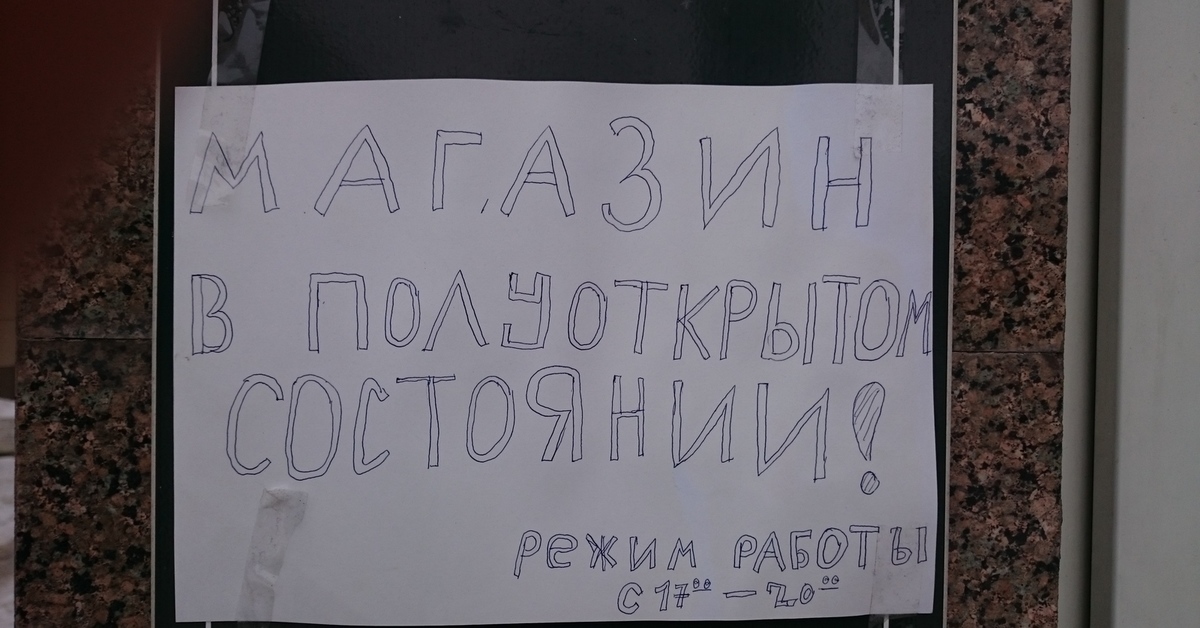 МАГАЗИН
В ПОЛУОТКРЫТОМ
СОСТОЯНИИ!
РЕЖИМ РАБОТЫ
С 17⁰⁰ — 20⁰⁰